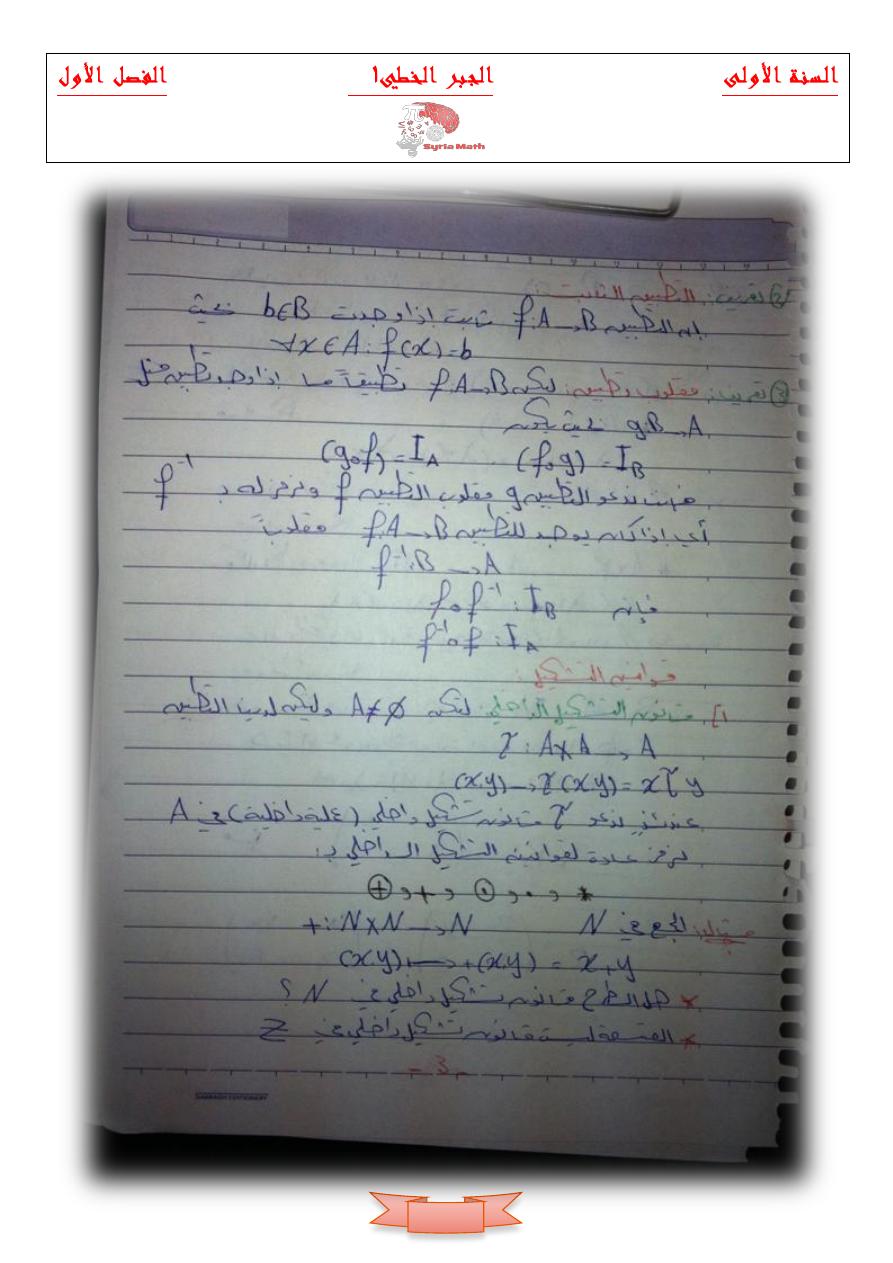 السنة الأولى الجبر الخطي1 الفصل الأول
Syria Math
② تعريف: التطبيق الثابت:
إن التطبيق f:A→B ثابت إذا وجدت b∈B بحيث
∀x∈A: f(x)=b
③ تعريف: مقلوب تطبيق: ليكن f:A→B تطبيقاً ما إذا وجد تطبيق مثل
g:B→A بحيث يكون
(f∘g) = I_B (g∘f) = I_A
ندعو التطبيق g مقلوب التطبيق f ونرمز له بـ f⁻¹
أي إذا كان يوجد للتطبيق f:A→B مقلوباً
f⁻¹:B→A
فإن f∘f⁻¹: I_B
f⁻¹∘f: I_A
قوانين التشكيل:
1] قانون التشكيل الداخلي: لتكن A≠∅ وليكن لدينا التطبيق
τ: A×A → A
(x,y) → τ(x,y) = xτy
عندئذٍ ندعو τ قانون تشكيل داخلي (عملية داخلية) في A
نرمز عادة لقوانين التشكيل الداخلي بـ:
* و . و ⊙ و + و ⊕
مثال: الجمع في N +: N×N → N
(x,y) ↦ +(x,y) = x+y
* هل الطرح قانون تشكيل داخلي في N ؟
* القسمة ليست قانون تشكيل داخلي في Z
- 3 -